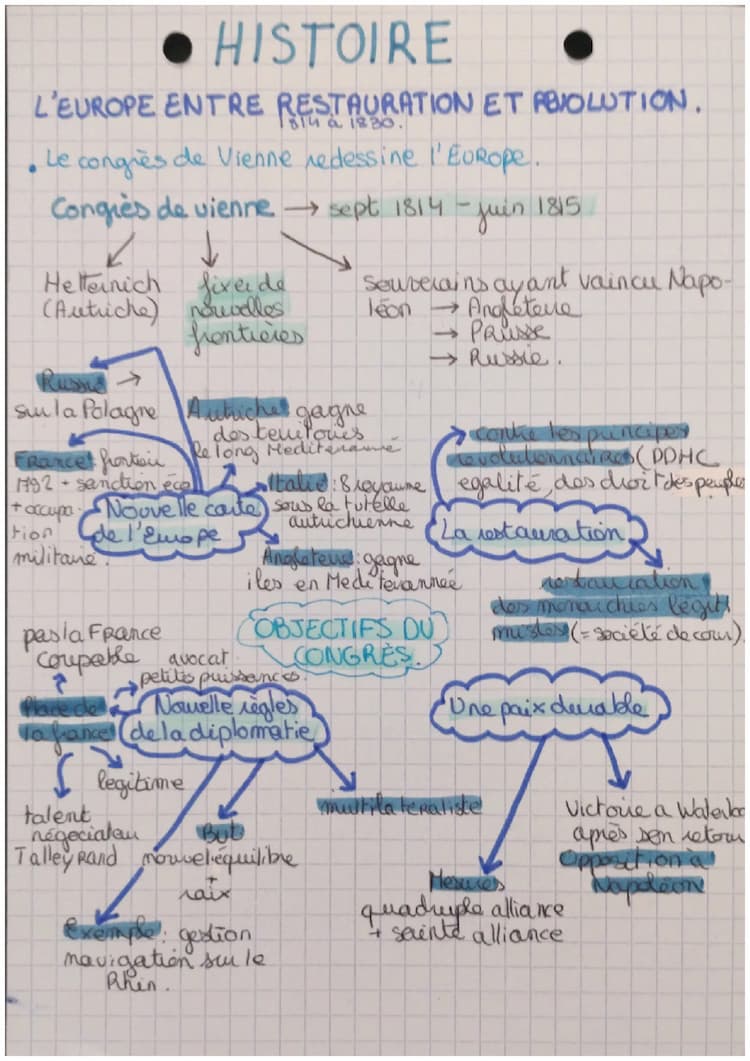 HISTOIRE
L'EUROPE ENTRE RESTAURATION ET RÉVOLUTION.
1814 à 1830.
• Le congrès de Vienne redessine l'Europe.
Congrès de vienne → sept 1814 - juin 1815
Metternich
(Autriche)
fixer de
nouvelles
frontières
souverains ayant vaincu Napo-
léon → Angleterre
→ Prusse
→ Russie.
Russie →
sur la Pologne
Autriche: gagne
des territoires
le long Mediterranné
France: frontière
1792 + sanction éco
+ occupa-
tion
militaire.
Nouvelle carte
de l'Europe
Italie: 8 royaume
sous la tutelle
autrichienne
Angleterre: gagne
iles en Mediterannée
contre les principes
revolutionnaires (DDHC
egalité, des droit des peuples
La restauration
restauration
des monarchies légiti
mistes (= société de cour).
OBJECTIFS DU
CONGRÈS.
pas la France
coupable
avocat
petits puissances.
Place de
la france
Nouvelle règles
de la diplomatie
legitime
talent
négociateur
Talleyrand
But
nouvel équilibre
+
paix
multilateraliste
Exemple: gestion
navigation sur le
Rhin.
Une paix durable
Mesures
quadruple alliance
+ sainte alliance
Victoire a Waterloo
après son retour
Opposition à
Napoléon